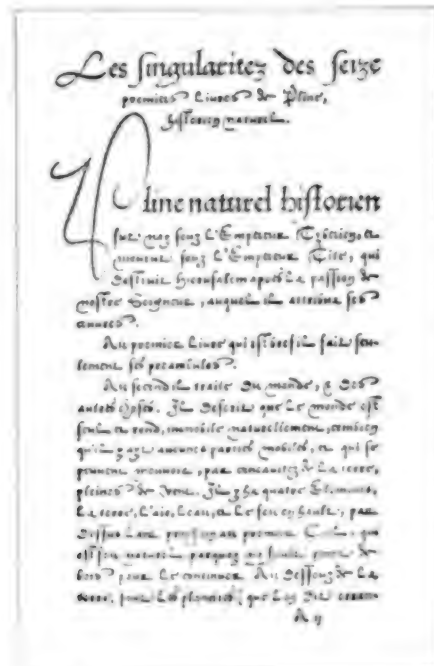 Les singularitez des seize
premiers Livres de Pline,
historien naturel.
Pline naturel historien
fut nay souz l'Empereur Tyberien, et
mourut souz l'Empereur Tite, qui
destruit Hierusalem apres la passion de
nostre Seigneur, auquel il attribua ses
œuures.
Au premier Livre qui est bref il fait seu-
lement ses preambules.
Au second il traite du monde, & des
autres choses. Il descrit que le monde est
seul et rond, immobile naturellement, combien
qu'il y ayt aucunes parties mobiles, et qui se
peuuent mouuoir, par concauitez de la terre,
pleines de vent. Il y ha quatre Elements,
La terre, l'air, l'eau, et le feu en hault, par
dessus l'air
est son naturel
bois pour le continuer. Au dessouz de la
terre, sont les planettes, que l'on dit
A ij